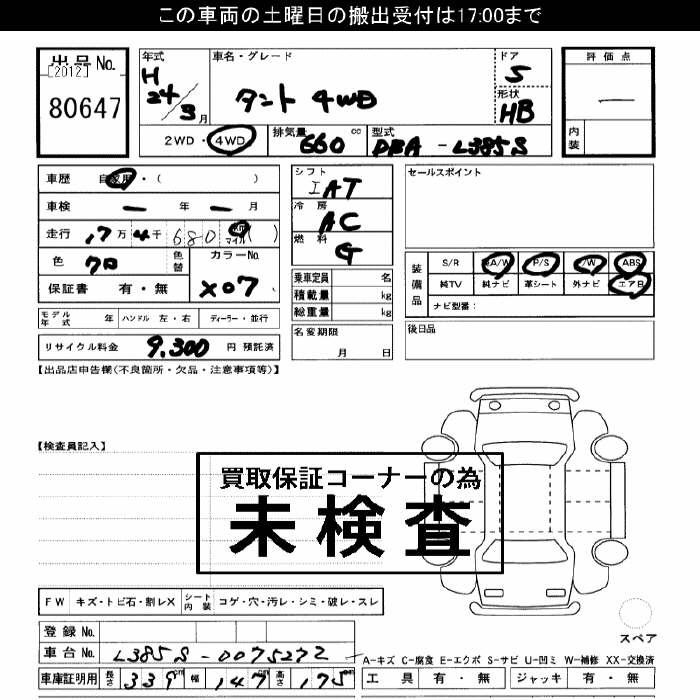 この車両の土曜日の搬出受付は17:00まで
出品No.
[2012]
80647
年式
H
24
3月
車名・グレード
タント 4WD
ドア
5
形状
HB
評価点
内装
2WD・4WD
排気量 660 cc
型式 DBA - L385S
車歴 自家用・( )
車検 ー 年 ー 月
走行 ,7万4千680 マイル( )
色 クロ
色替
カラーNo.
X07
保証書 有・無
モデル年式 年
ハンドル 左・右
ディーラー・並行
リサイクル料金 9,300 円 預託済
シフト
IAT
冷房
AC
燃料
G
乗車定員 名
積載量 kg
総重量 kg
名変期限
月 日
セールスポイント
装備品
S/R A/W P/S P/W ABS
純TV 純ナビ 革シート 外ナビ エアB
ナビ型番:
後日品
【出品店申告欄(不良箇所・欠品・注意事項等)】
【検査員記入】
買取保証コーナーの為
未検査
FW キズ・トビ石・割レX
シート内装 コゲ・穴・汚レ・シミ・破レ・スレ
スペア
登録No.
車台No. L385S-0075272
車庫証明用 長さ 339cm 幅 147cm 高さ 175cm
A-キズ C-腐食 E-エクボ S-サビ U-凹ミ W-補修 XX-交換済
工具 有・無 ジャッキ 有・無